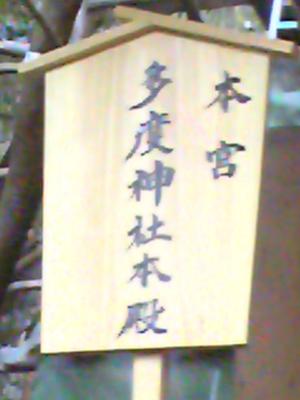 本宮
多度神社本殿